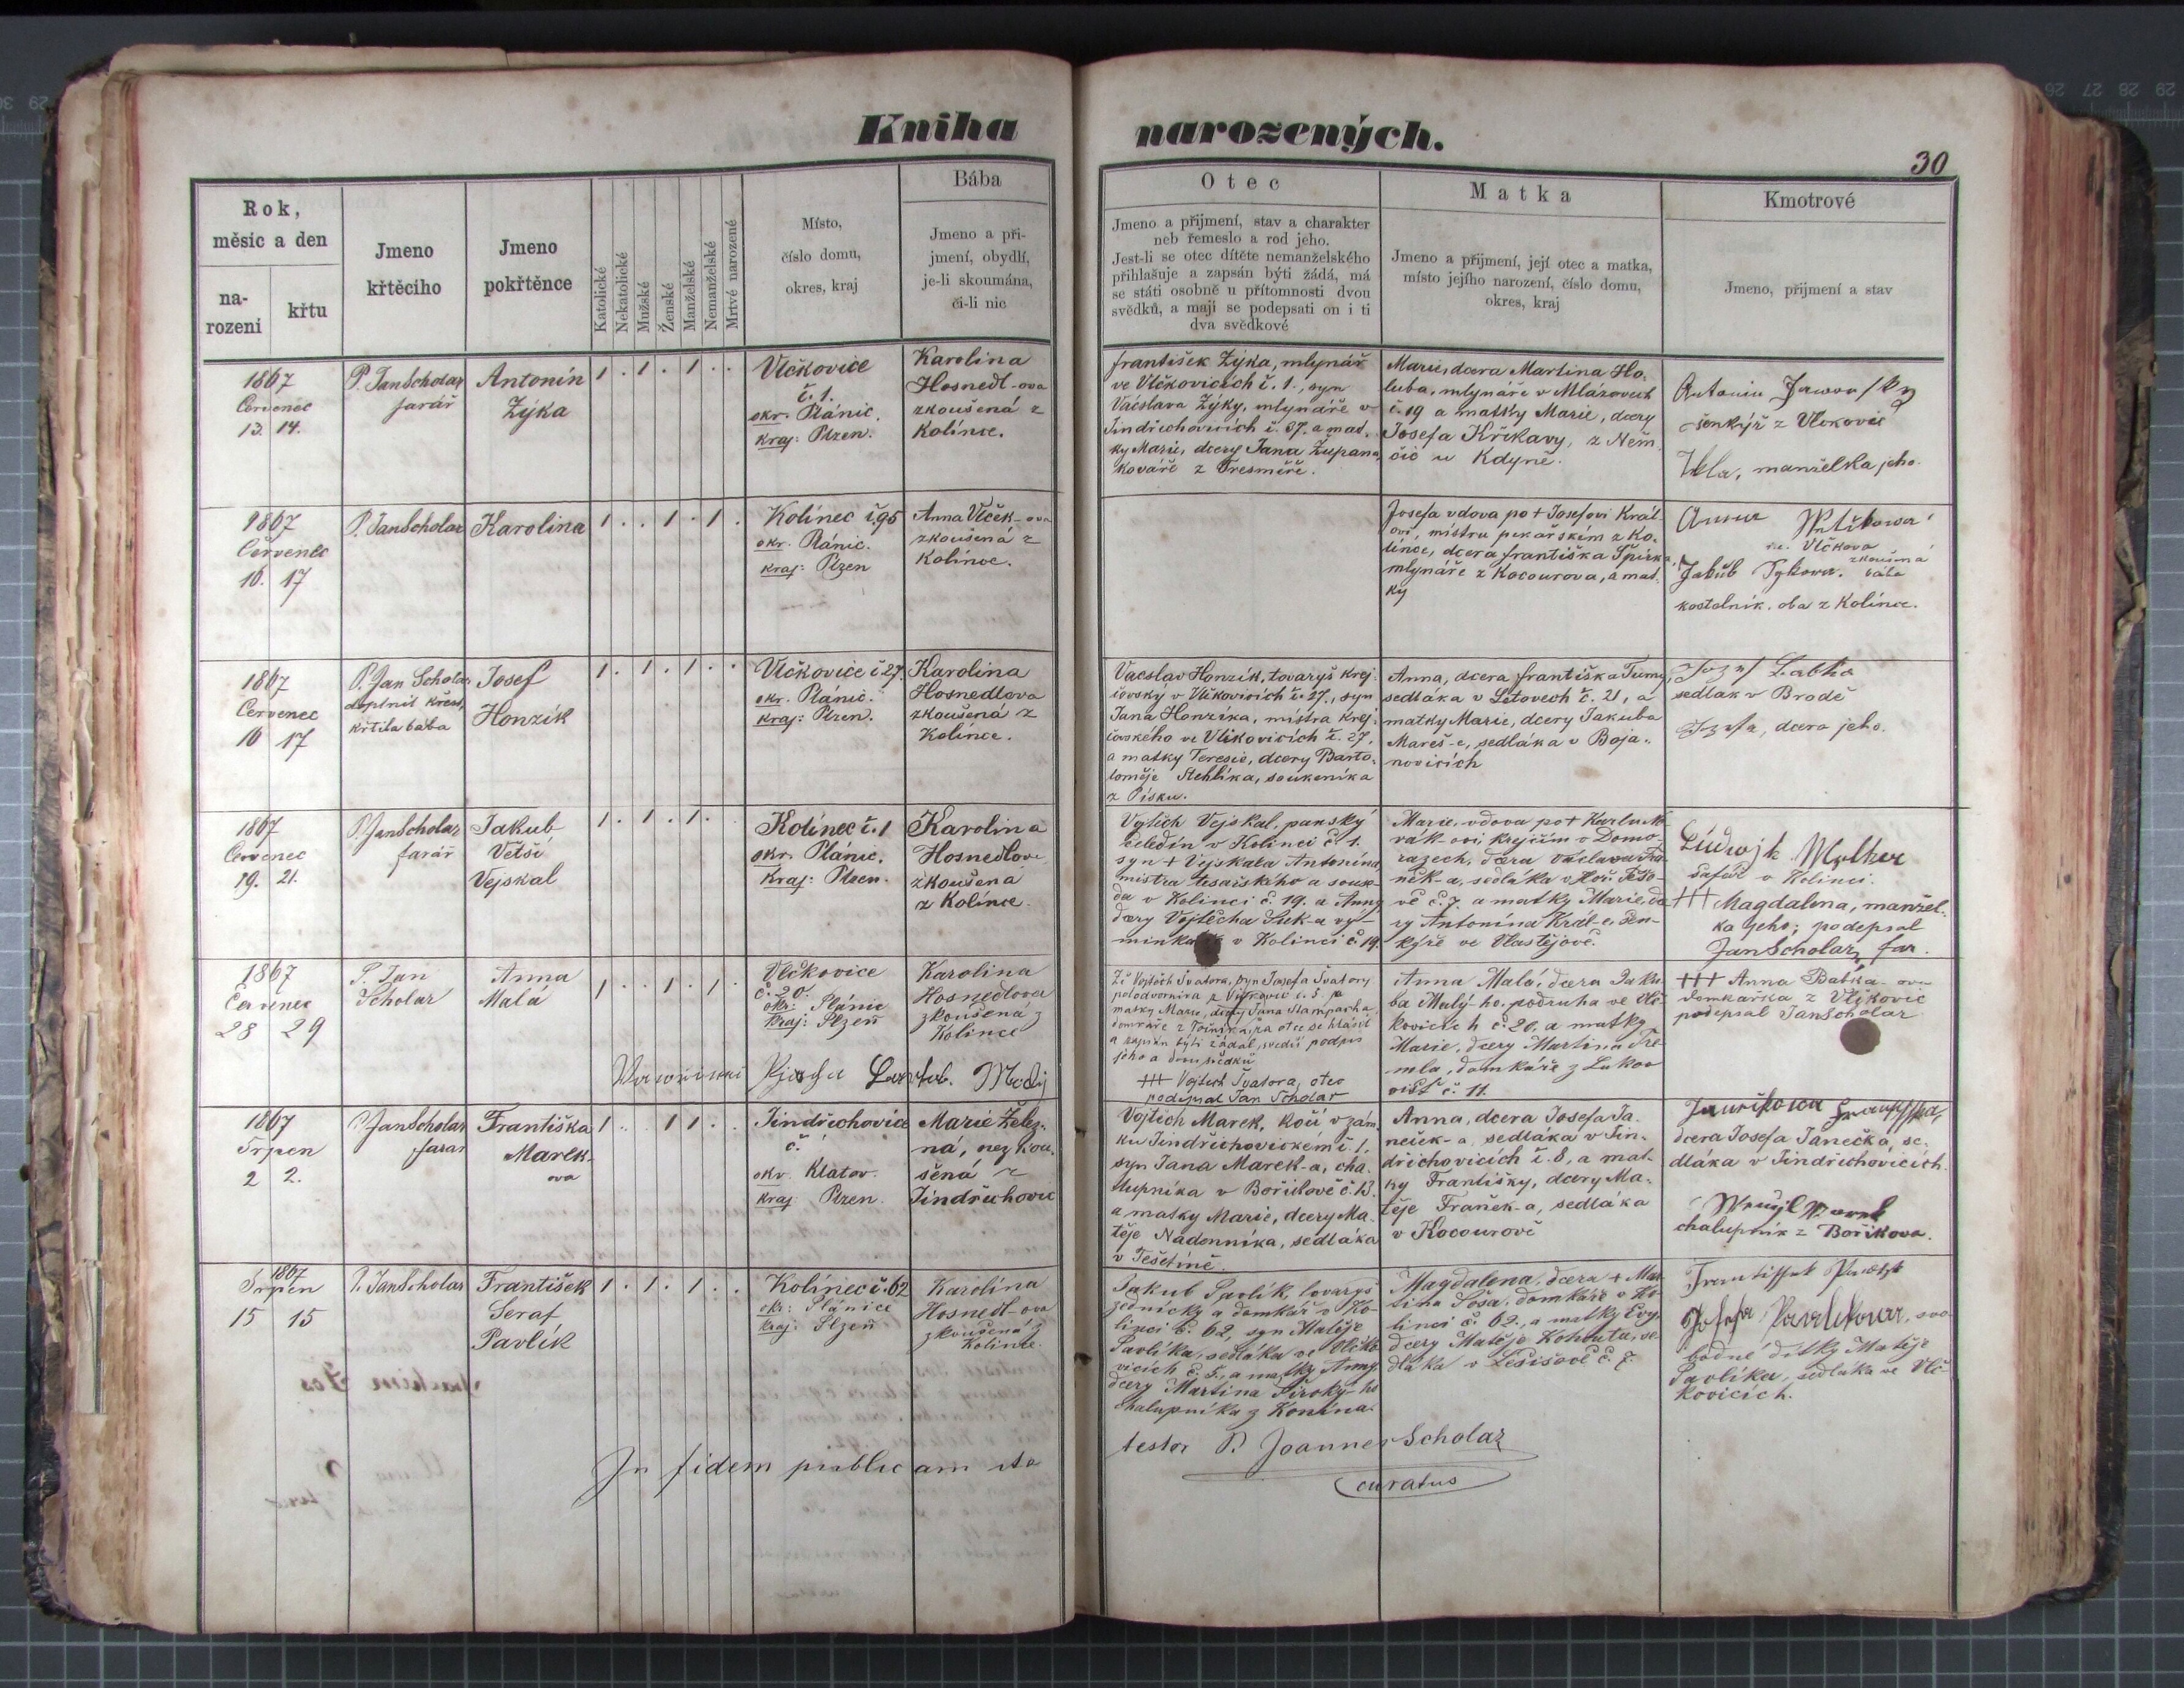 Kniha narozených.
30
Rok,
měsíc a den
na-
rozeni
křtu
Jmeno
křtěcího
Jmeno
pokřtěnce
Katolické
Nekatolické
Mužské
Ženské
Manželské
Nemanželské
Mrtvé narozené
Místo,
číslo domu,
okres, kraj
Bába
Jmeno a při-
jmení, obydlí,
je-li skoumána,
či-li nic
Otec
Jmeno a přijmení, stav a charakter
neb řemeslo a rod jeho.
Jest-li se otec dítěte nemanželského
přihlašuje a zapsán býti žádá, má
se státi osobně u přítomnosti dvou
svědků, a mají se podepsati on i ti
dva svědkové
Matka
Jmeno a přijmení, její otec a matka,
místo jejího narození, číslo domu,
okres, kraj
Kmotrové
Jmeno, přijmení a stav
1867
Červenec
13. 14.
P. Jan Scholar
farář
Antonín
Zýka
1 . 1 . 1 . .
Vlčkovice
č. 1.
okr. Plánic.
kraj: Plzen.
Karolina
Hosnedl-ova
zkoušená z
Kolínce.
František Zýka, mlynář
ve Vlčkovicích č. 1., syn
Václava Zýky, mlynáře v
Jindřichovicích č. 37. a mat-
ky Marie, dcery Jana Župana,
kováře z
Marie, dcera Martina Ho-
luba, mlynáře v Mlázovech
č. 19 a matky Marie, dcery
Josefa Křikavy, z Něm
čic u Kdyně.
Antonin
šenkýř z Vlčkovic
manželka jeho.
1867
Červenec
16. 17
P. Jan Scholar
Karolina
1 . . 1 . 1 .
Kolinec č. 95
okr. Plánic.
kraj: Plzen
Anna Vlček-ova
zkoušena z
Kolínce.
Josefa vdova po + Josefovi Král-
ovi, mistru pekařským z Ko-
línce, dcera Františka
mlynáře z Kocourova, a mat-
ky
Anna
Vlčkova
zkoušená
bába
Jakub
kostelník, oba z Kolínce.
1867
Červenec
16 17
P. Jan Scholar
doplnil křest,
křtila bába
Josef
Honzík
1 . 1 . 1 . .
Vlčkovice č. 27
okr. Plánic.
kraj: Plzen.
Karolina
Hosnedlova
zkoušená z
Kolínce.
Vacslav Honzík, tovaryš krej-
čovský v Vlčkovicích č. 27., syn
Jana Honzíka, mistra krej-
čovského ve Vlčkovicích č. 27.
a matky Teresie, dcery Barto-
loměje Stehlíka, soukenika
z Písku.
Anna, dcera Františka
sedláka v Letovech č. 21, a
matky Marie, dcery Jakuba
Mareš-e, sedláka v Boja-
novicích
Jozef
sedlak v Brodě
dcera jeho.
1867
Červenec
19. 21.
P. Jan Scholar
farář
Jakub
Větší
Vejskal
1 . 1 . 1 .
Kolínec č. 1
okr. Plánic.
Kraj: Plzen.
Karolina
Hosnedlova
zkoušena
z Kolince.
Vojtěch Vejskal, panský
čeledín v Kolinci č. 1.
syn + Vejskala Antonína,
mistra tesařského a souse-
da v Kolinci č. 19. a Anny
dcery Vojtěcha Suk-a vý-
v Kolinci č. 19.
Marie, vdova po + Karlu
krejčím v Domo-
razech, dcera Václava
sedláka v
vě č. 7. a matky Marie, dce-
ry Antonína Král-e, šen-
kýře ve Vlastějově.
Ludwjk
šafář v Kolinci.
+++ Magdalena, manžel-
ka jeho; podepsal
Jan Scholar, far.
1867
Červenec
28 29
P. Jan
Scholar
Anna
Malá
1 . . 1 . 1 .
Vlčkovice
č. 20.
okr: Plánic
Kraj: Plzeň
Karolina
Hosnedlova
zkoušená z
Kolince
Že Vojtěch Švatora, syn Josefa Švatory
z Vlčkovic č. 5. a
matky Marie, dcery Jana
domkáře z Točníka, za otce se hlásil
a zapsán býti žádal, svědčí podpis
jeho a dvou svědků
+++ Vojtěch Švatora, otec
podepsal Jan Scholar
Anna Malá, dcera Jaku
ba Malý-ho, podruha ve Vlč-
kovicích č. 20. a matky
Marie, dcery Martina
domkáře z Lukov
č. 11.
+++ Anna Babka-ova
domkařka z Vlčkovic
podepsal Jan Scholar
1867
Srpen
2 2.
P. Jan Scholar
farar
Františka
Marek-
ova
1 . . 1 1 . .
Jindřichovice
č. 1
okr. Klatov.
kraj Plzen.
Marie Želez-
ná, nezkou-
šená z
Jindřichovic
Vojtěch Marek, kočí v zám-
ku Jindřichovickém č. 1.
syn Jana Marek-a, cha-
lupníka v Bořikově č. 13.
a matky Marie, dcery Ma-
těje Nadenníka, sedláka
v Těšetíně.
Anna, dcera Josefa Ja-
neček-a, sedláka v Jin-
dřichovicích č. 8, a mat-
ky Františky, dcery Ma-
těje Franěk-a, sedláka
v Kocourově
dcera Josefa Janečka, se-
dláka v Jindřichovicích.
chalupník z Bořikova.
1867
Srpen
15 15
P. Jan Scholar
František
Seraf
Pavlík
1 . 1 . 1 . .
Kolínec č. 62
okr: Plánice
Kraj: Plzeň
Karolína
Hosnedl-ova
zkoušená z
Kolince.
Jakub Pavlík, tovaryš
zednický a domkář v Ko-
linci č. 62, syn Matěje
Pavlíka, sedláka ve Vlčko-
vicích č. 5., a matky Anny,
dcery Martina Široký-ho
chalupníka z Konína.
Magdalena, dcera + Mar-
tina Soša, domkáře v Ko-
linci č. 62., a matky Evy,
dcery Matěje Kohouta, se-
dláka v č. 7.
Frantissek
Josefa Pavlikowa, svo-
bodné dítky Matěje
Pavlíka, sedláka ve Vlč-
kovicích.
In fidem publicam ita testor P. Joannes Scholar
curatus